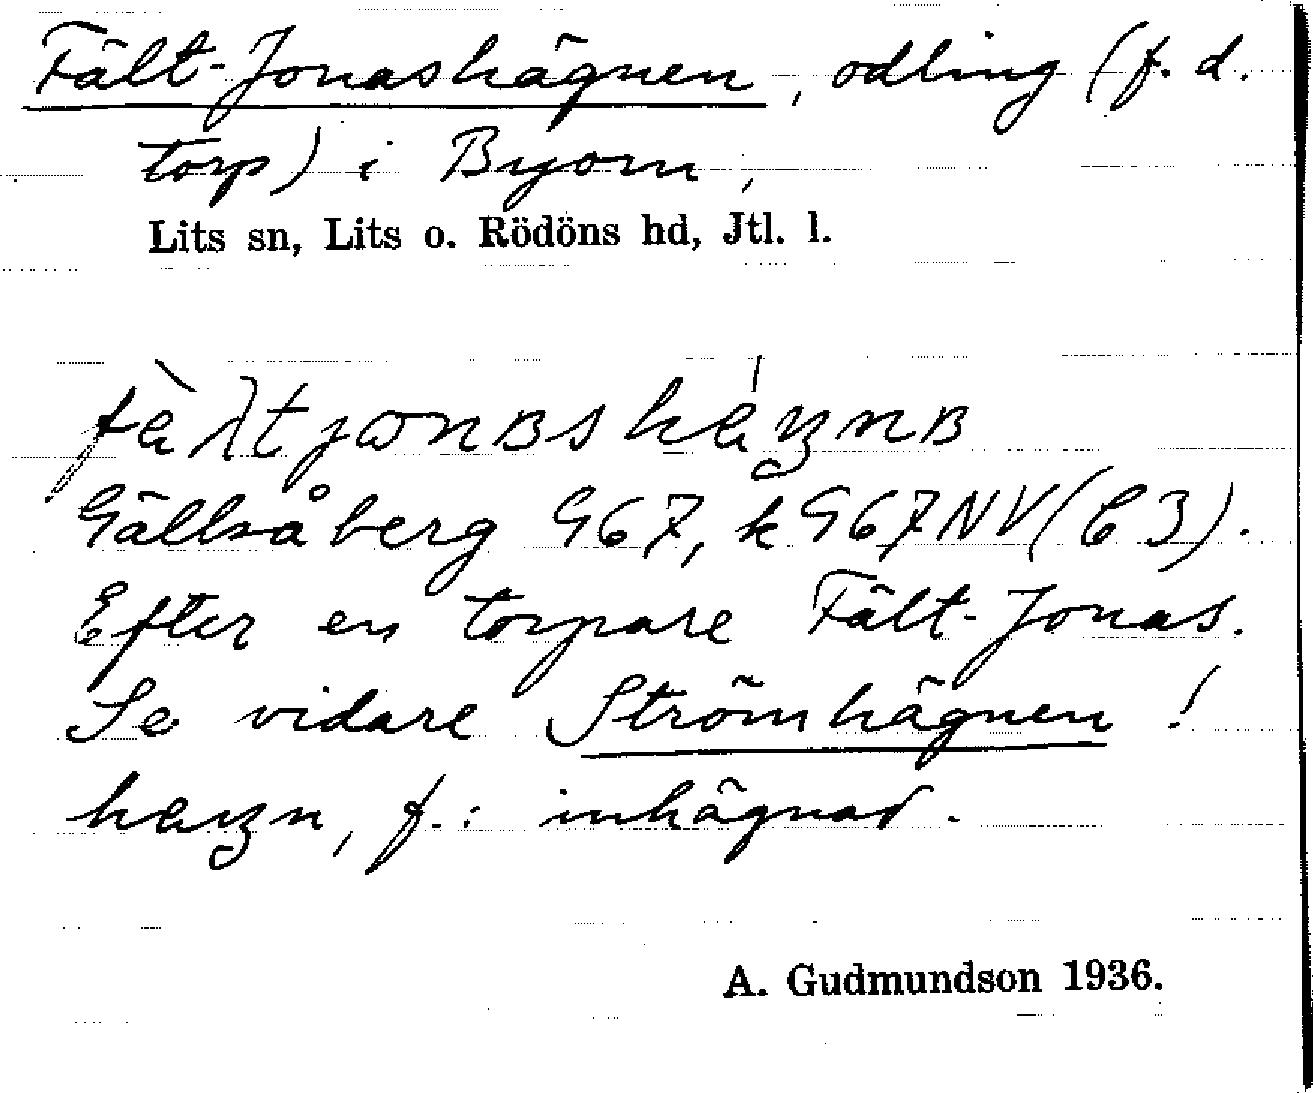 Fält-Jonashägnen, odling (f. d.
torp) i Byom,
Lits sn, Lits o. Rödöns hd, Jtl. l.
Gällsåberg 967, k 967 NV (C3).
Efter en torpare Fält-Jonas.
Se vidare Strömhägnen!
f.: inhägnad.
A. Gudmundson 1936.